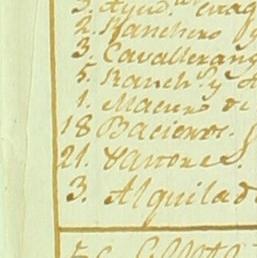 3. Ayud.
2. Ranchero y
3. Cavallerang
5. Ranch. y A
1. Maestro de
18 Bacieros.
21. Varones.
3. Alquilad